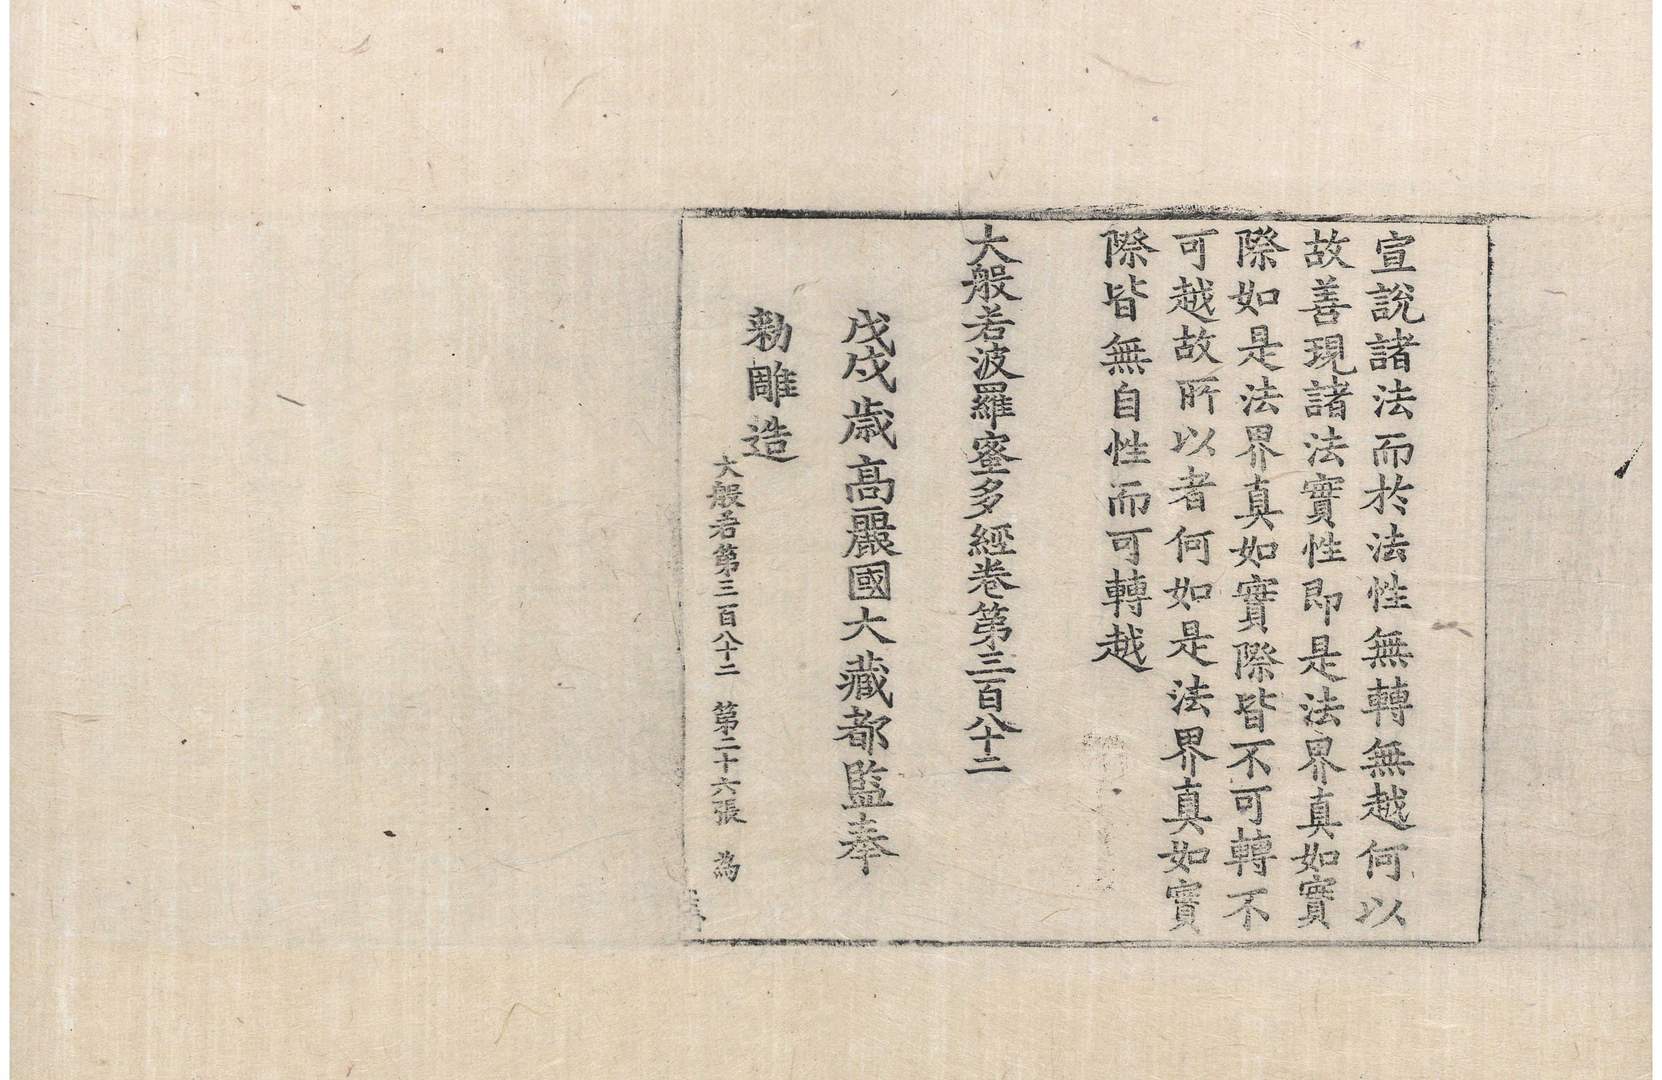 宣說諸法而於法性無轉無越何以
故善現諸法實性即是法界真如實
際如是法界真如實際皆不可轉不
可越故所以者何如是法界真如實
際皆無自性而可轉越
大般若波羅蜜多經卷第三百八十二
戊戌歲高麗國大藏都監奉
勑雕造
大般若第三百八十二 第二十六張 為